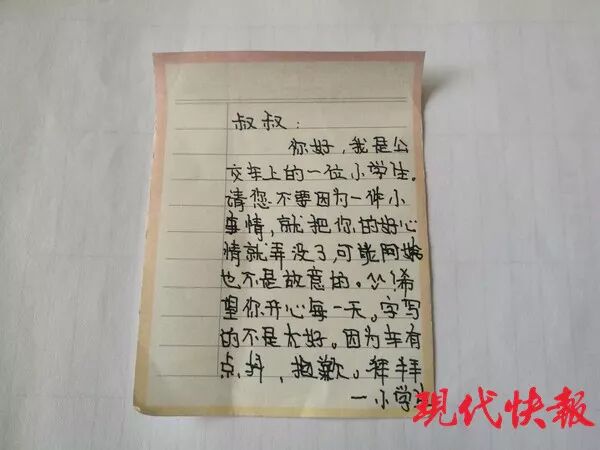 叔叔：
你好，我是公
交车上的一位小学生.
请您不要因为一件小
事情，就把你的好心
情就弄没了,可能阿姨
也不是故意的。^^!希
望你开心每一天。字写
的不是太好。因为车有
点抖，抱歉。拜拜
一小学生
现代快報